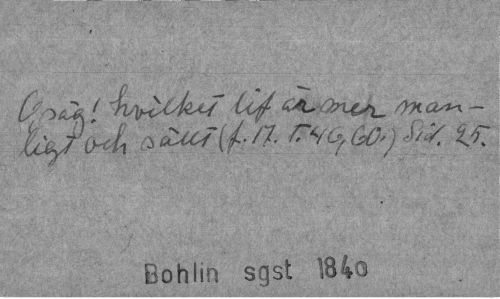 O säg! hvilket lif är mer man-
ligt och sällt (f. 17. T. 40, 60.) Sid. 25.
Bohlin sgst 1840